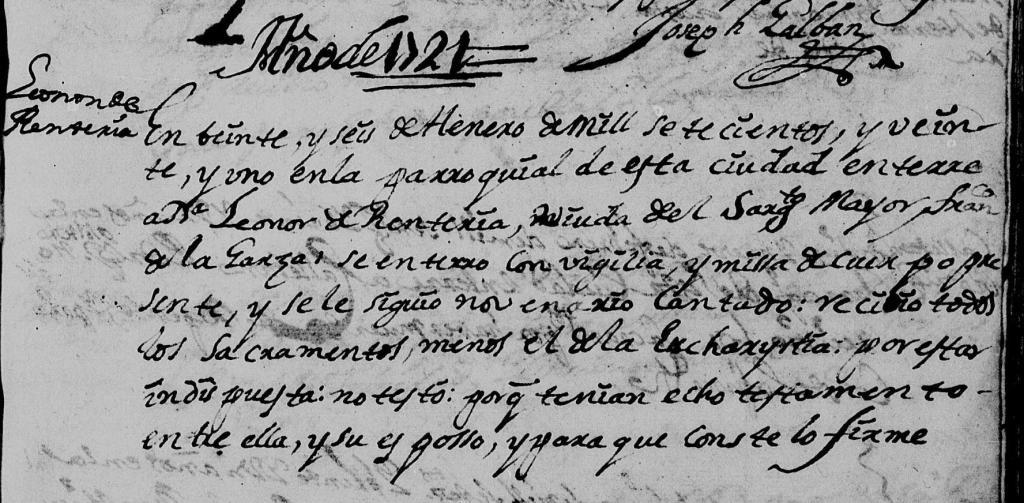 Joseph Galban
Año de 1721
Leonor de
Renteria
En beinte, y seis de Henero de mill setecientos, y vein-
te, y uno en la parroquial de esta ciudad enterre
a Dª Leonor de Renteria, viuda del Sargto Mayor Franco
de la Garza: se enterro con vigilia, y missa de cuerpo pre
sente, y se le siguio novenario cantado: recibio todos
los sacramentos, menos el de la Eucharystia: por estar
indispuesta: no testó: porq tenian echo testamento-
entre ella, y su esposso, y para que conste lo firme